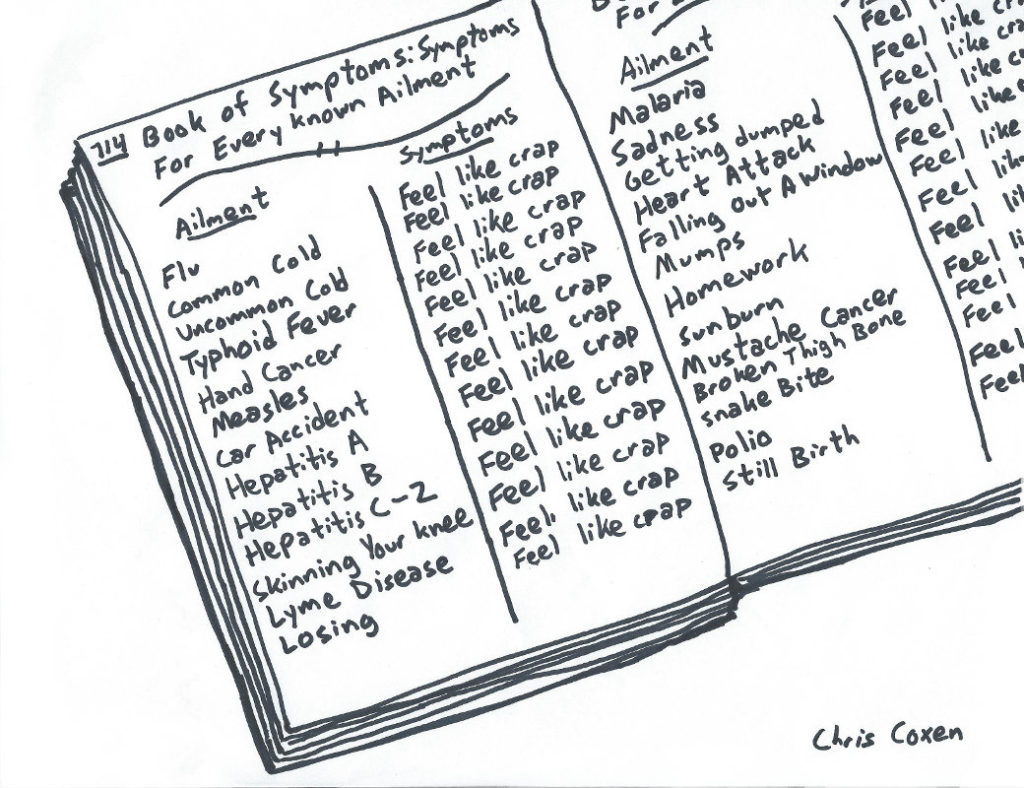 714 Book of Symptoms: Symptoms
For Every known Ailment
Ailment
Flu
Common Cold
Uncommon Cold
Typhoid Fever
Hand Cancer
Measles
Car Accident
Hepatitis A
Hepatitis B
Hepatitis C-Z
Skinning Your knee
Lyme Disease
Losing
Symptoms
Feel like crap
Feel like crap
Feel like crap
Feel like crap
Feel like crap
Feel like crap
Feel like crap
Feel like crap
Feel like crap
Feel like crap
Feel like crap
Feel like crap
Feel like crap
For
Ailment
Malaria
Sadness
Getting dumped
Heart Attack
Falling out A window
Mumps
Homework
Sunburn
Mustache Cancer
Broken Thigh Bone
Snake Bite
Polio
Still Birth
Feel like
Feel like cra
Feel like cra
Feel like c
Feel like
Feel like
Feel like
Feel li
Feel li
Feel
Feel
Feel
Feel
Chris Coxen